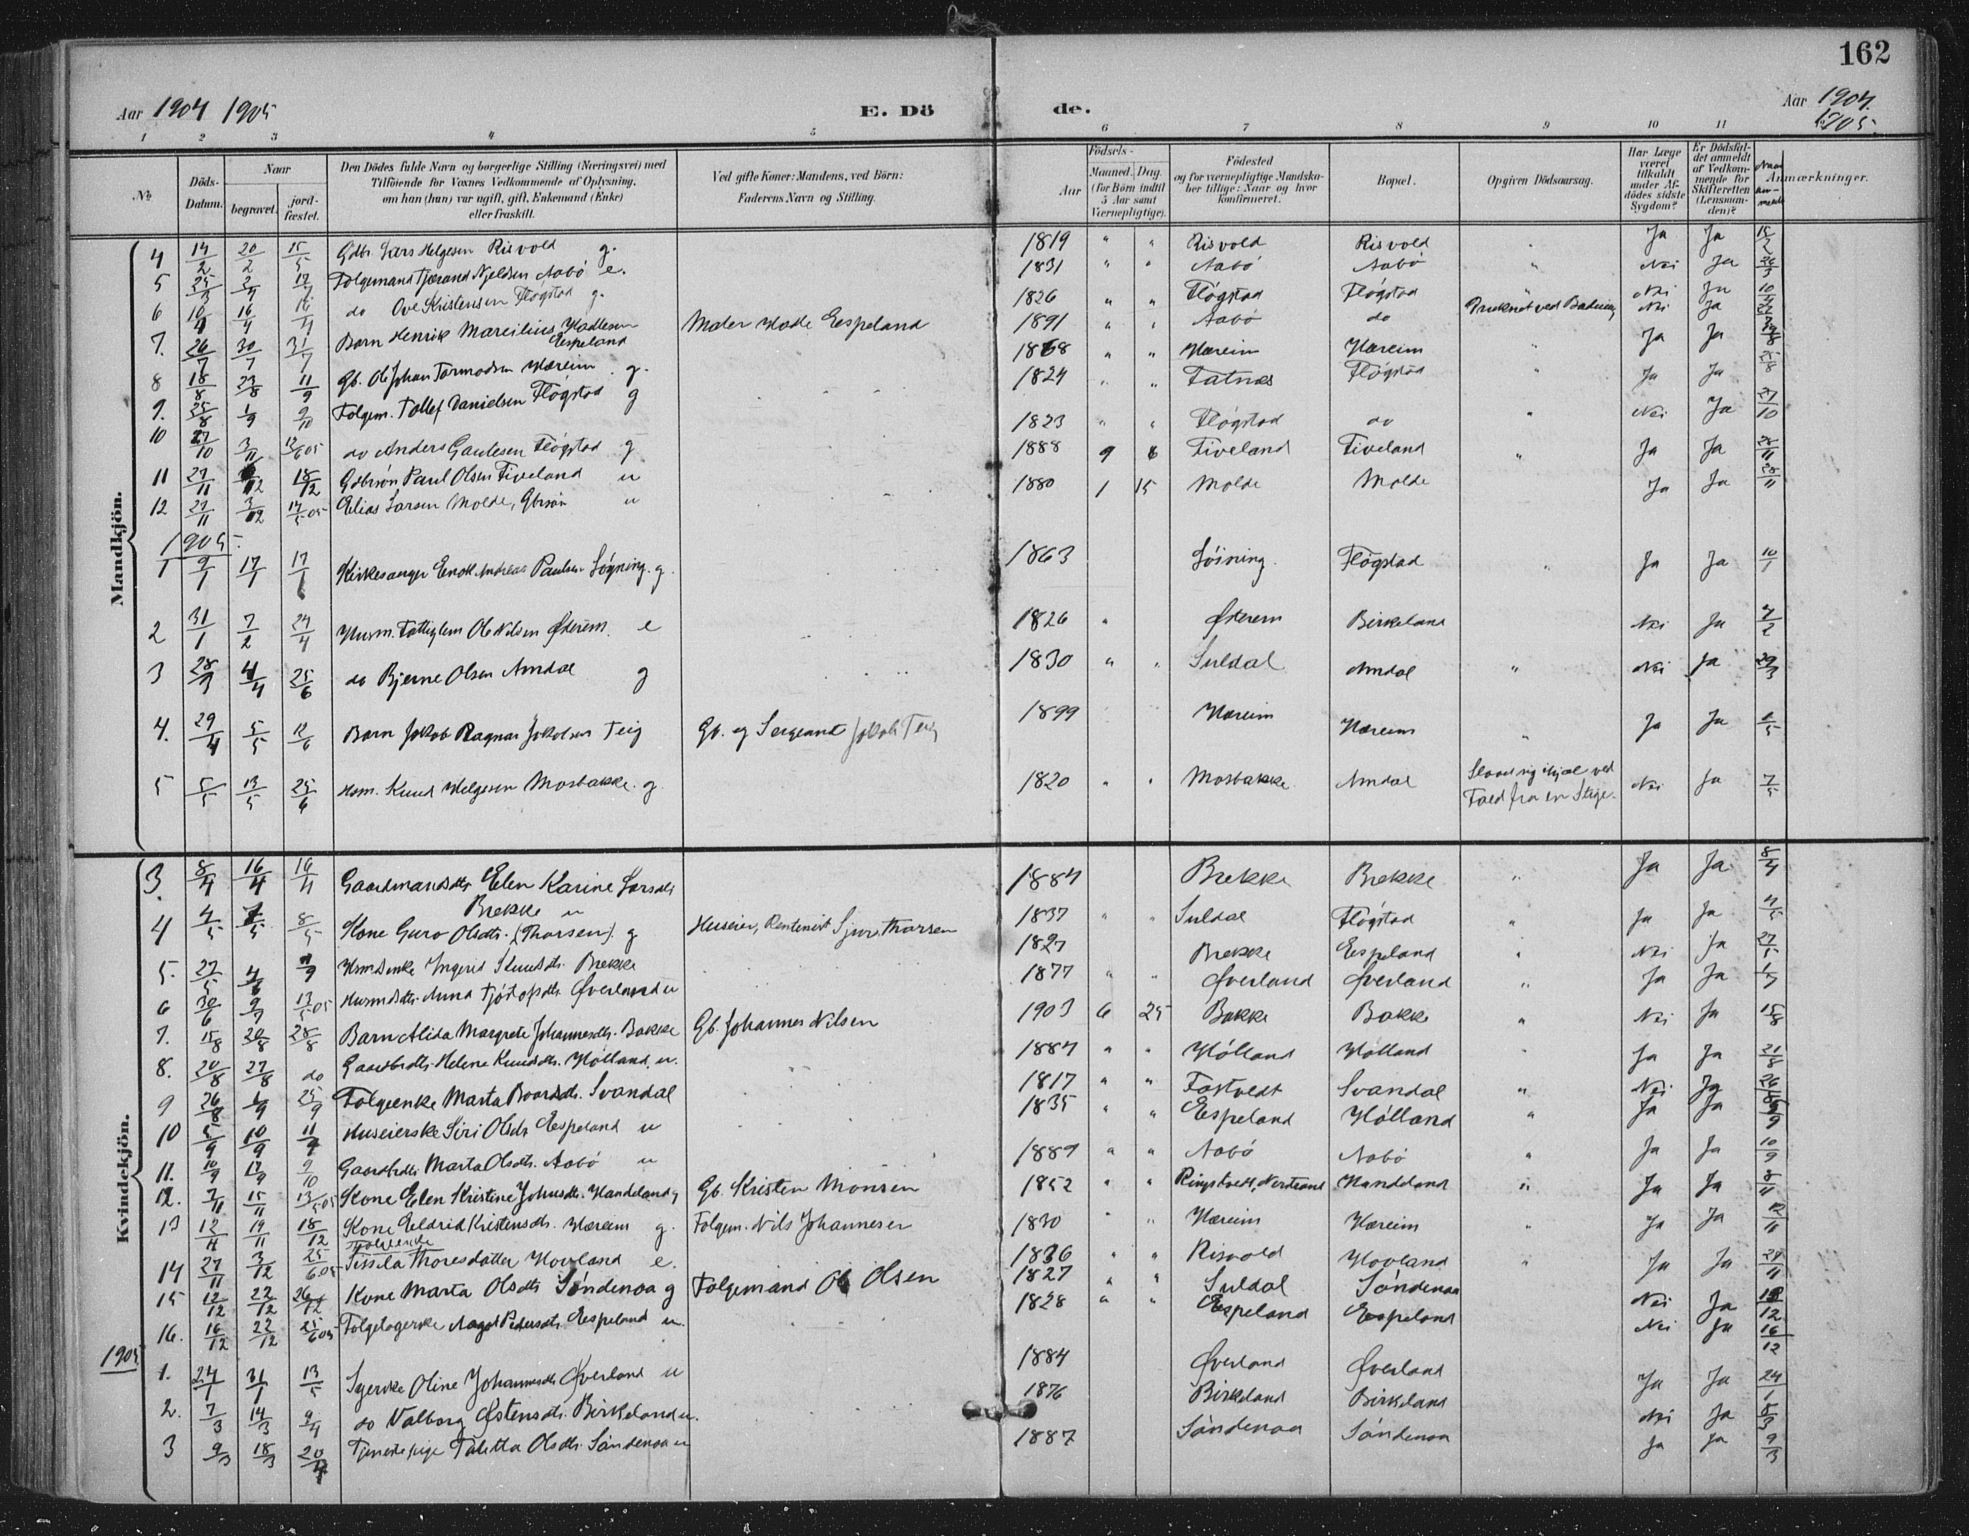 162
Aar 1904 1905
E. Dö de.
Aar 1904.
1905.
1 2 3 4 5 6 7 8 9 10 11
No.
Döds-Datum.
Naar
begravet.
jord-fæstet.
Den Dödes fulde Navn og borgerlige Stilling (Næringsvei) med
Tilföiende for Voxnes Vedkommende af Oplysning,
om han (hun) var ugift, gift, Enkemand (Enke)
eller fraskilt.
Ved gifte Koner: Mandens, ved Börn:
Faderens Navn og Stilling.
Födsels-
Aar
Maaned. Dag.
(for Börn indtil
5 Aar samt
Værnepligtige).
Födested
og for værnepligtige Mandska-
ber tillige: Naar og hvor
konfirmeret.
Bopæl.
Opgiven Dödsaarsag.
Har Læge
været
tilkaldt
under Af-
dödes sidste
Sygdom?
Er Dödsfal-
det anmeldt
af Vedkom-
mende for
Skifteretten
(Lensman-
den)?
Anmærkninger.
Mandkjön.
4 14/2 20/2 15/5 Gdbr. Lars Helgesen Risvold g. 1819 " " Risvold Risvold " Ja Ja 15/2
5 25/3 Folgemand Tjærand Njeldsen Aabö e. 1831 " " Aabö Aabö " Nei Ja 26/3
6 10/4 16/4 16/4 do Ove Kristensen Flögstad g. 1826 " " Flögstad Flögstad " Nei Ja 10/4
7. 26/7 30/7 31/7 Barn Henrik Marcilius Hadlesen Espeland Mader Hadle Espeland 1891 " " Aabö do Druknet ved Badning Nei Ja
8 18/8 23/8 11/9 Gb. Ole Johan Tormodsen Hæreim g. 1868 " " Hæreim Hæreim Ja Ja
9. 25/8 1/9 9/10 Folgem. Tollef Danielsen Flögstad g 1824 " " Tatnes Flögstad " Ja Ja 25/8
10 27/10 3/11 13/6 05 do Anders Gaulesen Flögstad g 1823 " " Flögstad do " Nei Ja 27/10
11 27/11 /12 18/12 Gdbrsön Paul Olsen Tiveland u 1888 9 6 Tiveland Tiveland " Ja Ja 28/11
12 27/11 3/12 14/5 05 Elias Larsen Molde, Gbrsön u 1880 1 15 Molde Molde Ja Ja 28/11
1905.
1 9/1 17/1 17/1 Kirkesanger Enok Andreas Paulsen Lögning. g. 1863 Löining. Flögstad " Ja Ja 10/1
2 31/1 7/2 24/4 Husm. Fattiglem Ole Nilsen Østerem. e 1826 " Østerem Birkeland Nei Ja 2/2
3 28/3 4/4 25/6 do Bjerne Olsen Amdal g 1830 " " Suldal Amdal " Nei Ja 29/3
4. 29/4 5/5 12/6 Barn Jakob Ragnar Jakobsen Teig Gb. og Sergeant Jakob Teig 1899 Hæreim Hæreim " Ja Ja 2/5
5 5/5 13/5 25/6 Hsm. Knud Helgesen Mosbakke. g. 1820 " " Mosbakke. Amdal Slaad sig ihjæl ved
Fald fra en Stige. Nei Ja 7/5
Kvindekjön.
3. 8/4 16/4 16/4 Gaardmandsdtr Elen Karine Larsdtr Brekke u 1884 Brekke Brekke " Ja Ja 8/4
4 4/5 7/5 8/5 Kone Guro Olsdtr. (Thorsen). g Huseier, Rentenist Sjur Thorsen 1837 " " Suldal Flögstad " Ja Ja 4/5
5. 27/5 4/6 /9 Hsm.Enke Ingerid Knudsdtr. Brekke 1827 Brekke Espeland " Nei Ja 27/5
6 30/6 9/7 13/5 05 Husmdsdtr. Anna Tjöstofsdtr. Øverland u 1877 " " Øverland Øverland " Ja Ja 1/7
7. 15/8 20/8 28/8 Barn Alida Margrete Johannesdtr. Bakke Gb. Johannes Nilsen 1903 6 25 Bakke Bakke " Nei Ja 15/8
8. 20/8 27/8 do Gaardbrdtr. Helene Knudsdtr. Hölland, u. 1884 " " Hölland Hölland " Ja Ja 21/8
9 26/8 1/9 25/9 Folgeenke Marta Baardsdtr. Svandal 1817 " " Fostvedt Svandal " Nei Ja 26/8
10 5/9 10/9 11/9 Huseierske Siri Olsdtr Espeland u 1835 " " Espeland Hölland " Ja Ja 5/9
11. 10/9 17/9 9/10 Gaardbrdtr. Marta Olsdtr. Aabö u 1889 " " Aabö Aabö " Ja Ja 10/9
12. 7/11 15/11 13/5 05 Kone Elen Kristine Johnsdtr. Handeland g Gb. Kristen Monsen 1852 " " Ringstvedt, Nerstrand Handeland " Ja Ja 8/11
13 12/11 19/11 18/12 Kone Eldrid Kristensdtr. Hæreim g. Folgem. Nils Johannesen 1830 " " Hæreim Hæreim " Ja Ja 12/11
14 27/11 3/12 25/6 05 Folgeenke Sissela Thoresdatter Hovland e. 1836 " " Risvold Hovland " Ja Ja 29/11
15 12/12 22/12 26/12 Kone Marta Olsdtr Söndenaa g Folgemand Ole Olsen 1827 " " Suldal Söndenaa Nei Ja 13/12
16. 16/12 22/12 25/6 05 Folgetagerske Aagot Pedersdtr. Espeland u. 1828 " " Espeland Espeland Nei Ja 16/12
1905
1. 24/1 31/1 13/5 Syerske Oline Johannesdtr Øverland u 1884 Øverland Øverland Ja Ja 24/1
2. 7/3 14/3 9/4 do Valborg Østensdtr. Birkeland u. 1876 Birkeland Birkeland Nei Ja 8/3
3 9/3 18/3 20/4 Tjenestepige Talitta Olsdtr. Söndenaa u 1887 Söndenaa Söndenaa Ja Ja 9/3